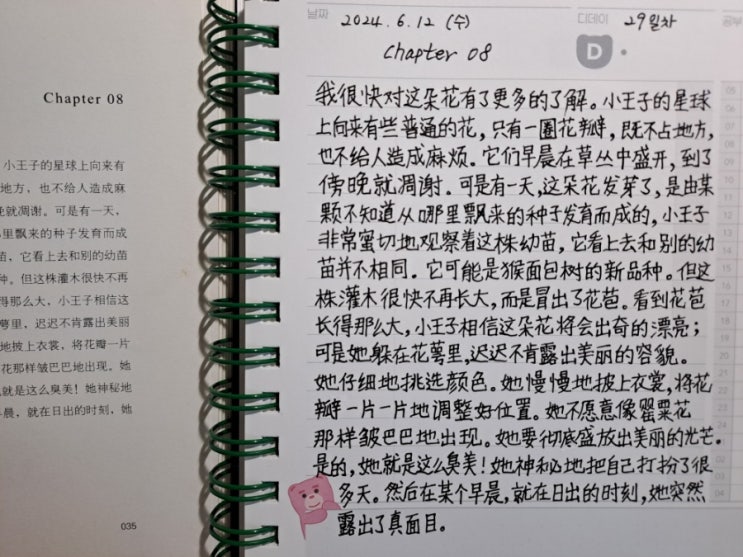 Chapter 08
小王子的星球上向来有
地方，也不给人造成麻
晚就凋谢。可是有一天，
里飘来的种子发育而成
苗，它看上去和别的幼苗
种。但这株灌木很快不再
得那么大，小王子相信这
萼里，迟迟不肯露出美丽
地披上衣裳，将花瓣一片
花那样皱巴巴地出现。她
就是这么臭美！她神秘地
晨，就在日出的时刻，她
035
날짜 2024.6.12 (수)
디데이 29일차
공부
Chapter 08
D
我很快对这朵花有了更多的了解。小王子的星球
上向来有些普通的花，只有一圈花瓣，既不占地方，
也不给人造成麻烦。它们早晨在草丛中盛开，到了
傍晚就凋谢。可是有一天，这朵花发芽了，是由某
颗不知道从哪里飘来的种子发育而成的，小王子
非常密切地观察着这株幼苗，它看上去和别的幼
苗并不相同．它可能是猴面包树的新品种。但这
株灌木很快不再长大，而是冒出了花苞。看到花苞
长得那么大，小王子相信这朵花将会出奇的漂亮；
可是她躲在花萼里，迟迟不肯露出美丽的容貌。
她仔细地挑选颜色。她慢慢地披上衣裳，将花
瓣一片一片地调整好位置。她不愿意像罂粟花
那样皱巴巴地出现。她要彻底盛放出美丽的光芒。
是的，她就是这么臭美！她神秘地把自己打扮了很
多天。然后在某个早晨，就在日出的时刻，她突然
露出了真面目。